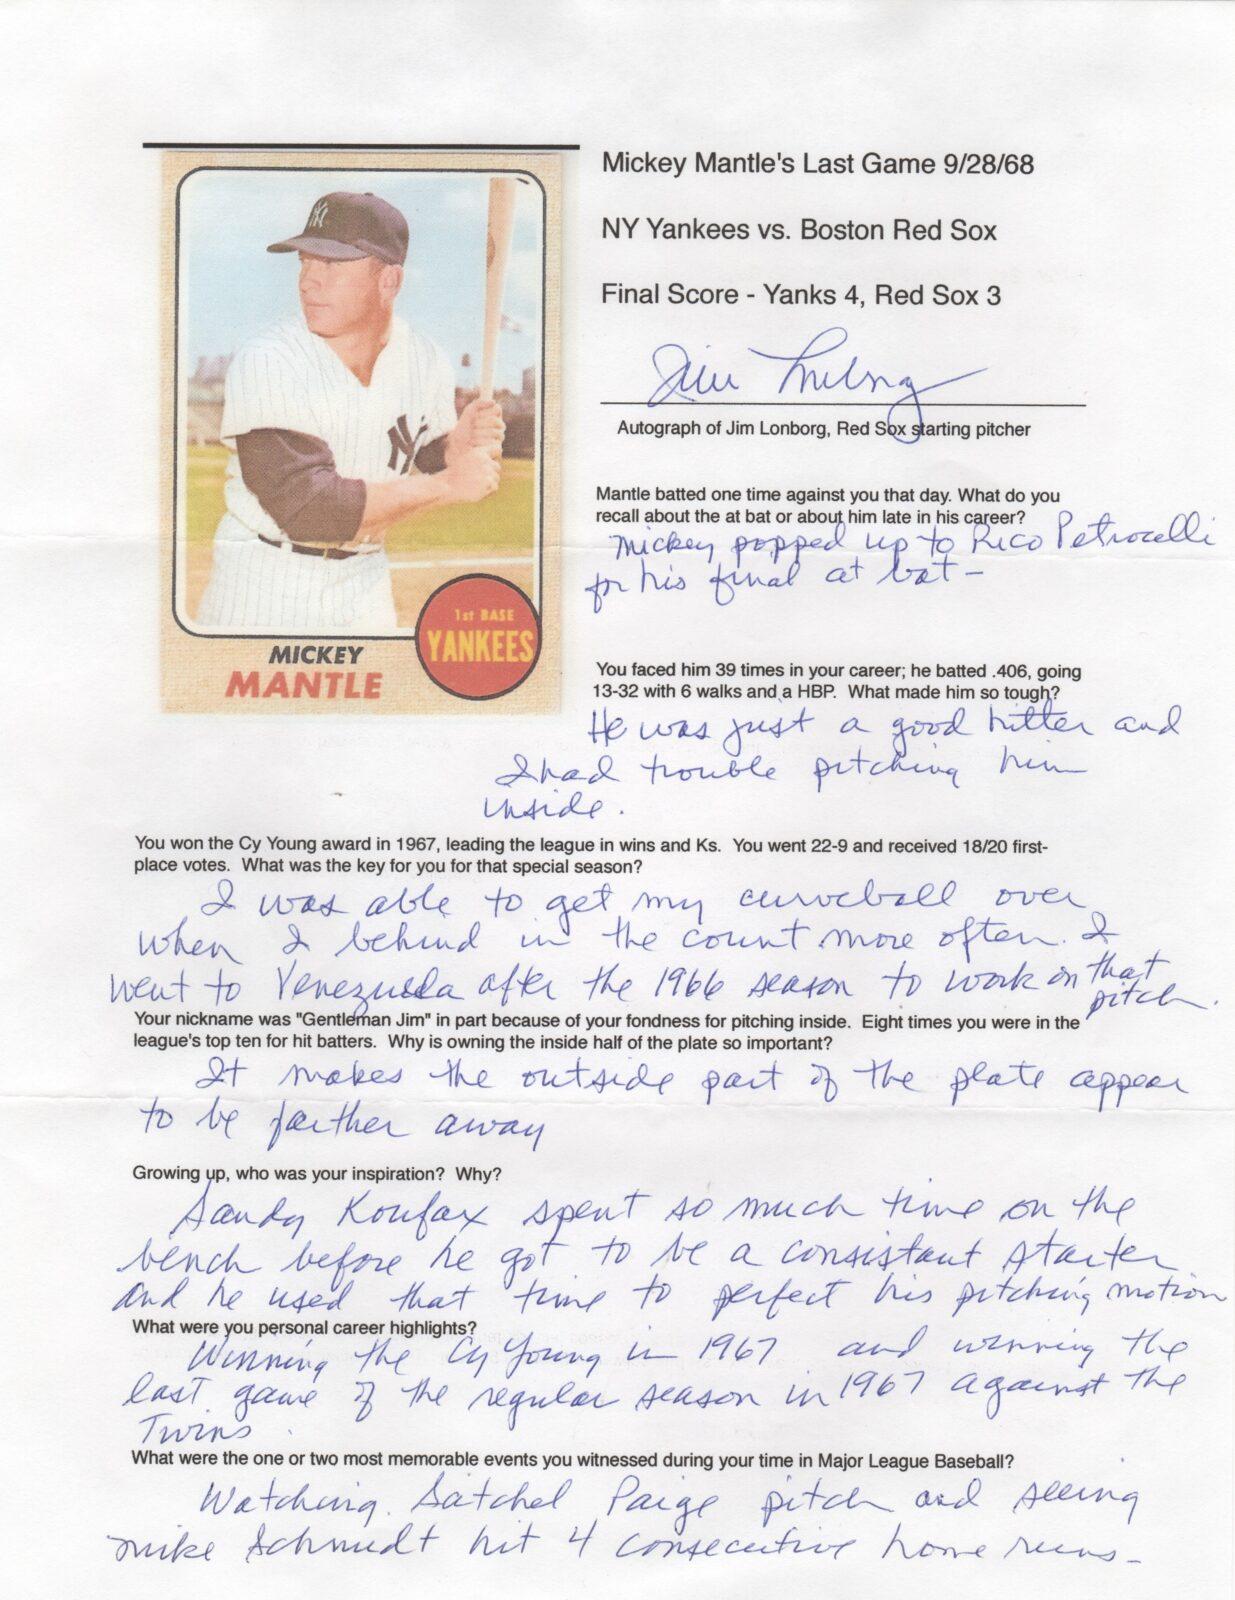 Mickey Mantle's Last Game 9/28/68
NY Yankees vs. Boston Red Sox
Final Score - Yanks 4, Red Sox 3
Jim Lonborg
Autograph of Jim Lonborg, Red Sox starting pitcher
NY
NY
1st BASE
YANKEES
MICKEY
MANTLE
Mantle batted one time against you that day. What do you
recall about the at bat or about him late in his career?
Mickey popped up to Rico Petrocelli
for his final at bat -
You faced him 39 times in your career; he batted .406, going
13-32 with 6 walks and a HBP. What made him so tough?
He was just a good hitter and
I had trouble pitching him
inside.
You won the Cy Young award in 1967, leading the league in wins and Ks. You went 22-9 and received 18/20 first-
place votes. What was the key for you for that special season?
I was able to get my curveball over
when I behind in the count more often. I
went to Venezuela after the 1966 season to work on that
pitch.
Your nickname was "Gentleman Jim" in part because of your fondness for pitching inside. Eight times you were in the
league's top ten for hit batters. Why is owning the inside half of the plate so important?
It makes the outside part of the plate appear
to be farther away
Growing up, who was your inspiration? Why?
Sandy Koufax spent so much time on the
bench before he got to be a consistant starter
and he used that time to perfect his pitching motion
What were you personal career highlights?
Winning the Cy Young in 1967 and winning the
last game of the regular season in 1967 against the
Twins.
What were the one or two most memorable events you witnessed during your time in Major League Baseball?
Watching Satchel Paige pitch and seeing
Mike Schmidt hit 4 consecutive home runs -